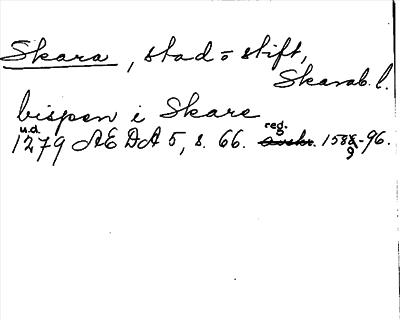 Skara, stad o stift,
Skarab. l.
bispen i Skare
u.d. reg.
1279 AEDA 5, s. 66. avskr. 1588-96.
9